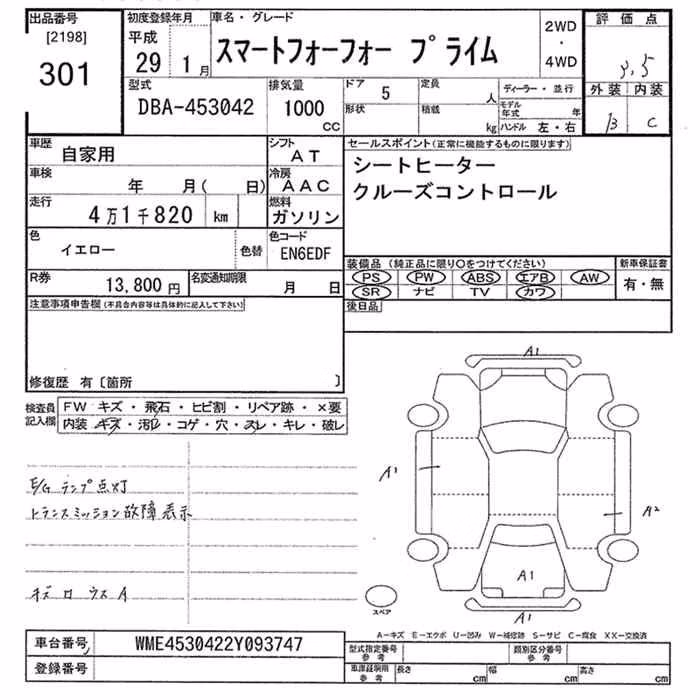 出品番号
[2198]
301
初度登録年月
平成
29 1月
車名・グレード
スマートフォーフォー プライム
2WD
・
4WD
評価点
3.5
外装 内装
B C
型式
DBA-453042
排気量
1000
CC
ドア 5
形状
定員
人
積載
kg
ディーラー・並行
モデル年式 年
ハンドル 左・右
車歴
自家用
シフト
AT
車検
年 月( 日)
冷房
AAC
走行
4万1千820 km
燃料
ガソリン
色
イエロー
色替
色コード
EN6EDF
R券
13,800円
名変通知期限
月 日
セールスポイント(正常に機能するものに限ります)
シートヒーター
クルーズコントロール
装備品 (純正品に限り○をつけてください)
PS PW ABS エアB AW
SR ナビ TV カワ
新車保証書
有・無
後日品
注意事項申告欄(不具合内容等は具体的に記入して下さい)
修復歴 有〔箇所 〕
検査員
記入欄
FW キズ・飛石・ヒビ割・リペア跡・×要
内装 キズ・汚レ・コゲ・穴・スレ・キレ・破レ
E/Gランプ点灯
トランスミッション故障表示
A1
A1
A2
A1
A1
スペア
A―キズ E―エクボ U―凹み W―補修跡 S―サビ C―腐食 XX―交換済
車台番号 WME4530422Y093747
登録番号
型式指定番号
参考
類別区分番号
参考
車庫証明用
参考
長さ cm
幅 cm
高さ cm